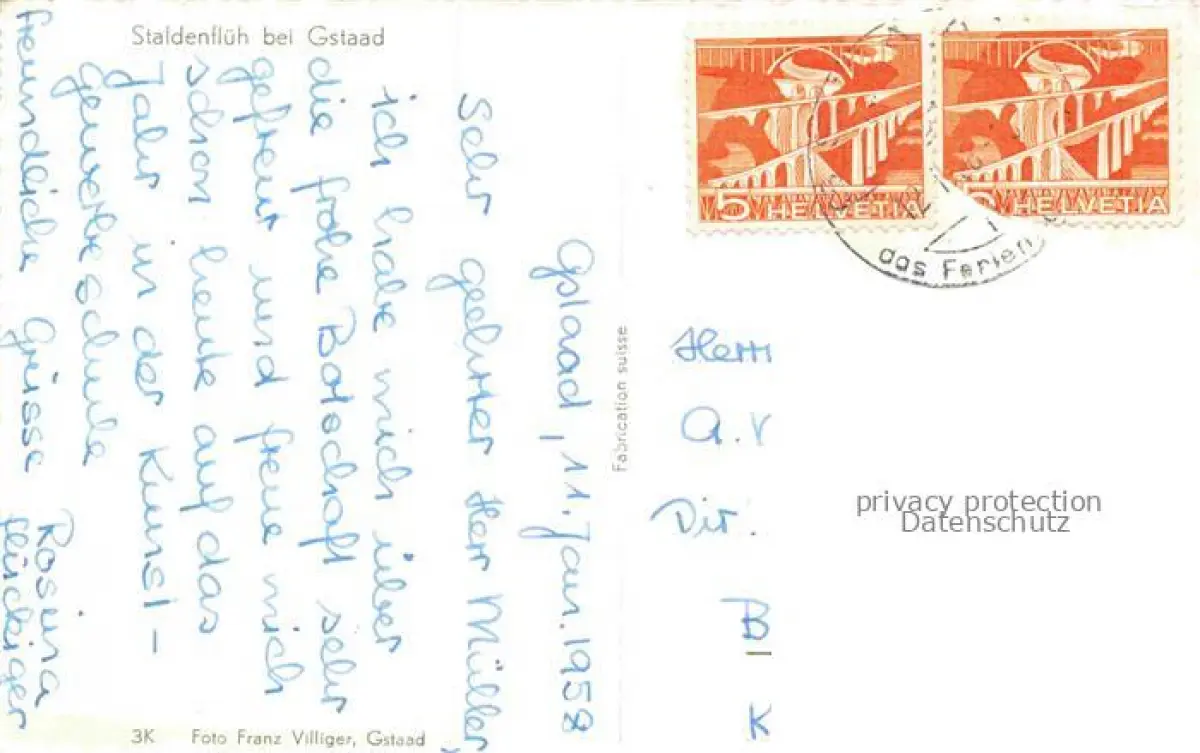 Staldenflüh bei Gstaad
Gstaad, 11. Jan. 1958
Sehr geehrter Herr Müller,
ich habe mich über
die frohe Botschaft sehr
gefreut und freue mich
schon heute auf das
Jahr in der Kunst-
gewerbeschule
freundliche Grüsse
Rosina
Flückiger
3K Foto Franz Villiger, Gstaad
Fabrication suisse
5 HELVETIA
5 HELVETIA
das Ferien
Herr
A. V
Dir.
B
K
privacy protection
Datenschutz